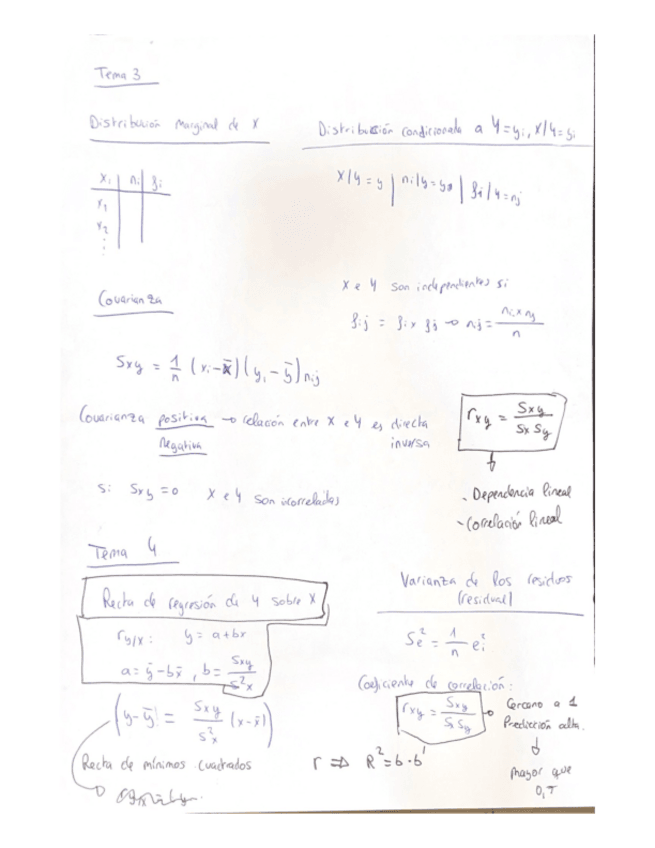 Tema 3
Distribución marginal de X
Distribución condicionada a Y=yi, X/Y=yi
xi | ni | fi
x1
x2
⋮
X/Y=y | ni/y=yj | fi/Y=nj
Covarianza
X e Y son independientes si
fij = fi x fj → nij = ni. x nj / n
Sxy = 1/n (xi - x̄)(yi - ȳ) nij
Covarianza positiva → relación entre X e Y es directa
Negativa inversa
rxy = Sxy / Sx Sy
- Dependencia lineal
- Correlación lineal
Si Sxy = 0 X e Y son incorreladas
Tema 4
Recta de regresión de Y sobre X
ry/x: y = a + bx
a = ȳ - bx̄, b = Sxy / S²x
(y - ȳ) = Sxy / S²x (x - x̄)
Recta de mínimos cuadrados
Varianza de los residuos
(residual)
Se² = 1/n ei²
Coeficiente de correlación:
rxy = Sxy / Sx Sy → Cercano a 1
Predicción alta.
↓
mayor que
r ⇒ R² = b · b'